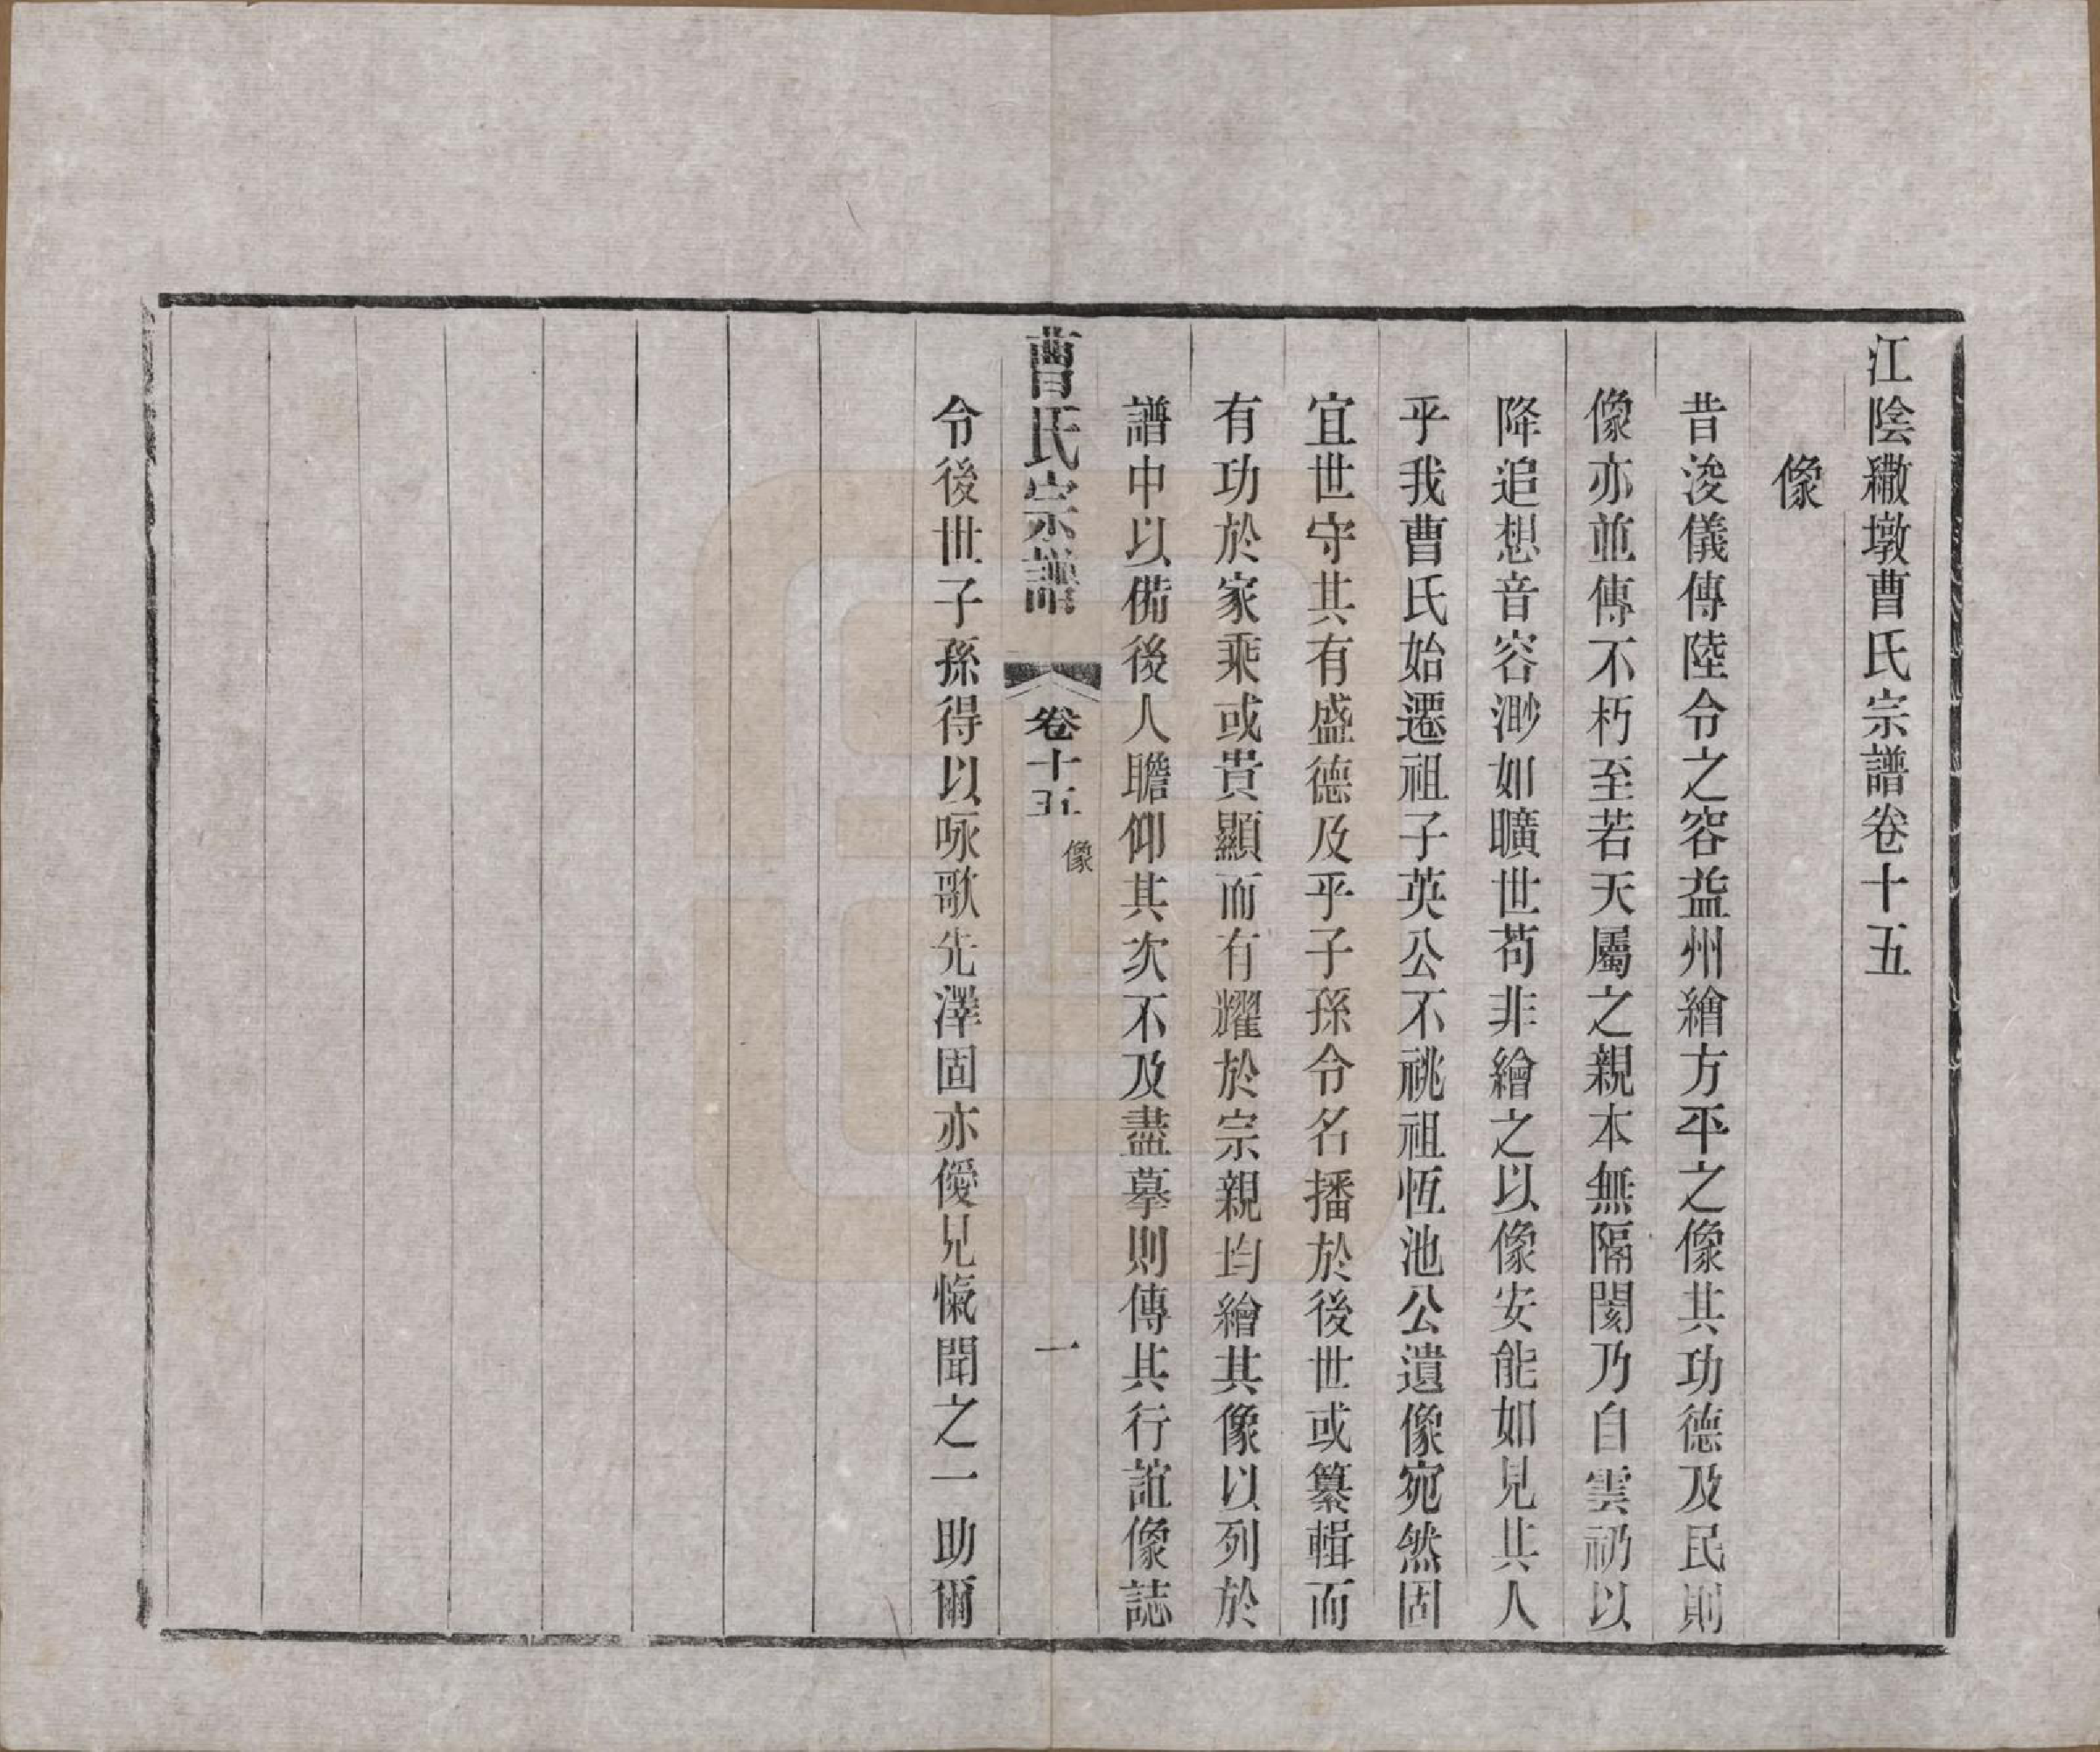 江陰繖墩曹氏宗譜卷十五
像
昔浚儀傳陸令之容益州繪方平之像其功德及民則
像亦並傳不朽至若天屬之親本無隔閡乃白雲礽以
降追想音容渺如曠世苟非繪之以像安能如見其人
乎我曹氏始遷祖子英公不祧祖恆池公遺像宛然固
宜世守其有盛德及乎子孫令名播於後世或纂輯而
有功於家乘或貴顯而有耀於宗親均繪其像以列於
譜中以備後人瞻仰其次不及盡摹則傳其行誼像誌
曹氏宗譜
卷十五
像
一
令後世子孫得以咏歌先澤固亦僾見愾聞之一助爾